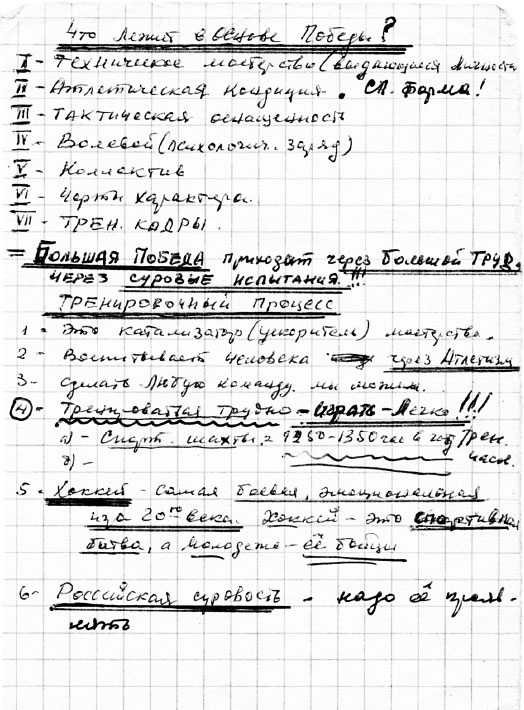 Что лежит в основе Победы?
I - Техническое мастерство (выдающиеся личности
II - Атлетическая кондиция. Сп. Форма!
III - Тактическая оснащенность
IV - Волевой (психологич. заряд)
V - Коллектив
VI - Черты характера.
VII - ТРЕН. КАДРЫ.
= БОЛЬШАЯ ПОБЕДА приходит через большой ТРУД,
ЧЕРЕЗ СУРОВЫЕ ИСПЫТАНИЯ!!!
ТРЕНИРОВОЧНЫЙ ПРОЦЕСС
1 - Это катализатор (ускоритель) мастерства.
2 - Воспитывает человека через Атлетизм
3 - сделать Любую команду мы можем.
4 - Тренироваться трудно - играть - Легко!!!
а) - Спорт. шахты = 1250-1350 час в год Трен.
часов.
б) -
5 - Хоккей - самая боевая, эмоциональная
из 20го века. Хоккей - это спортивная
битва, а молодежь - её бойцы
6 - Российская суровость - надо её прояв-
лять